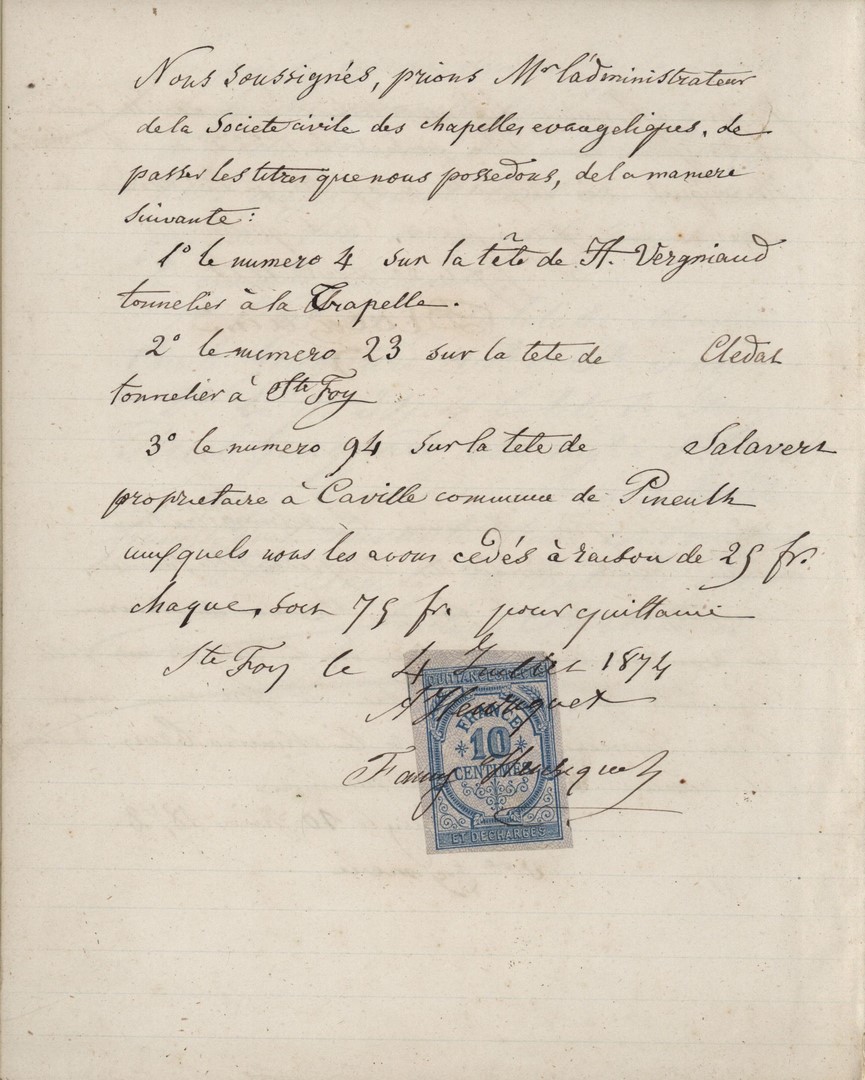 Nous soussignés, prions Mr l'administrateur
de la Societe civile des chapelles evangeliques, de
passer les titres que nous possedons, de la maniere
suivante :
1° le numero 4 sur la tête de H. Vergniaud
tonnelier à la Trapelle.
2° le numero 23 sur la tete de Cledat
tonnelier à Ste Foy
3° le numero 94 sur la tete de Salavert
proprietaire à Caville commune de Pineuilh
auxquels nous les avons cedés à raison de 25 fr.
chaque, soit 75 fr. pour quittance
Ste Foy le 4 Juillet 1874
QUITTANCES REÇUS
FRANCE
10
CENTIMES
Fanny
ET DECHARGES